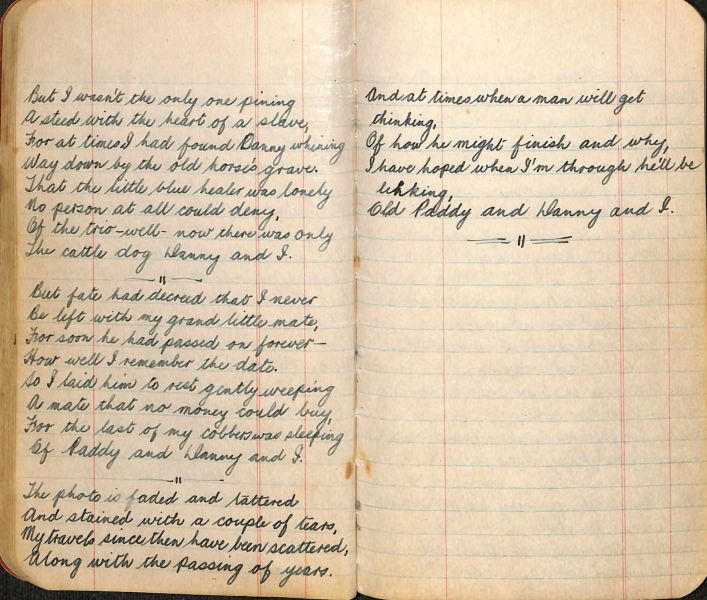 But I wasn't the only one pining
A steed with the heart of a slave,
For at times I had found Danny whening
Way down by the old horse's grave.
That the little blue healer was lonely
No person at all could deny,
Of the trio-well- now there was only
The cattle dog Danny and I.
But fate had decreed that I never
Be left with my grand little mate,
For soon he had passed on forever-
How well I remember the date.
So I laid him to rest gently weeping
A mate that no money could buy,
For the last of my cobbers was sleeping
Of Paddy and Danny and I.
The photo is faded and tattered
And stained with a couple of tears,
My travels since then have been scattered,
Along with the passing of years.
And at times when a man will get
thinking,
Of how he might finish and why,
I have hoped when I'm through he'll be
linking,
Old Paddy and Danny and I.